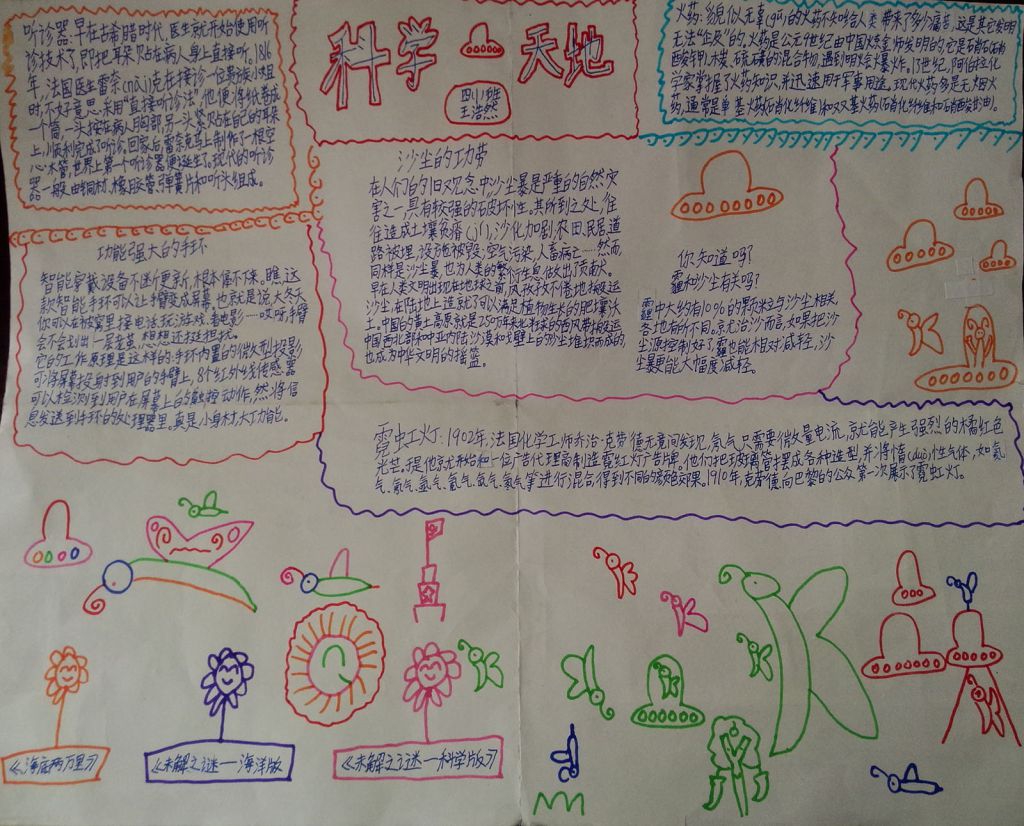 听诊器:早在古希腊时代,医生就开始使用听
诊技术了,即把耳朵贴在病人身上直接听。1816
年,法国医生雷奈(nài)克在接诊一位贵族小姐
时,不好意思采用“直接听诊法”,他便将纸卷成
一个筒,一头按在病人胸部,另一头紧贴在自己的耳朵
上,顺利完成了听诊。回家后,雷奈克马上制作了一根空
心木管,世界上第一个听诊器便诞生了。现代的听诊
器一般由铜材、橡胶管、弹簧片和听头组成。
科学天地
四(1)班
王浩然
火药:貌似无辜(gū)的火药不知给人类带来了多少痛苦,这是其它发明
无法“企及”的。火药是公元9世纪由中国炼丹师发明的,它是硝石(硝
酸钾)、木炭、硫磺的混合物,遇到明火会爆炸。13世纪,阿拉伯化
学家掌握了火药知识,并迅速用于军事用途。现代火药多是无烟火
药,通常是单基火药(硝化纤维)和双基火药(硝化纤维和硝酸甘油)。
功能强大的手环
智能穿戴设备不断更新,根本停不下来。瞧,这
款智能手环可以让手臂变成屏幕,也就是说,大冬天
你可以在被窝里接电话、玩游戏、看电影……哎呀手臂
会不会划出一层老茧,想想还挺担忧。
它的工作原理是这样的:手环内置的微型投影
可将屏幕投射到用户的手臂上,8个红外线传感器
可以检测到用户在屏幕上的触控动作,然将信
息发送到手环的处理器里。真是小身材,大功能。
沙尘的功带
在人们的旧观念中,沙尘暴是严重的自然灾
害之一,具有较强的破坏性。其所到之处,往
往造成土壤贫瘠(jí),沙化加剧,农田、民居、道
路被埋,设施被毁,空气污染,人畜病亡……然而,
同样是沙尘暴,也为人类的繁衍生息做出了贡献。
早在人类文明出现在地球之前,风孜孜不倦地搬运
沙尘,在陆地上造就了可以满足植物生长的肥壤沃
土。中国的黄土高原就是250万年来北半球的西风带搬运
中国西北部和中亚内陆沙漠和戈壁上的沙尘堆积而成的,
也成为中华文明的摇篮。
你知道吗?
霾和沙尘有关吗?
霾中大约有10%的颗粒来与沙尘相关,
各地有所不同。京尤沿沙而言,如果把沙
尘源控制好了,霾也能相对减轻,沙
尘暴更能大幅度减轻。
霓虹灯:1902年,法国化学工师乔治·克劳德无意间发现,氖气只需要微数量电流,就能产生强烈的橘红色
光芒。于是他就开始和一位广告代理商制造霓虹灯广告牌。他们把玻璃管摆成各种造型,并将惰(duò)性气体,如氦
气、氖气、氩气、氪气、氙气、氡气等进行混合得到不同的颜色效果。1910年,克劳德向巴黎的公众第一次展示了霓虹灯。
《海底两万里》
《未解之谜—海洋版》
《未解之谜—科学版》